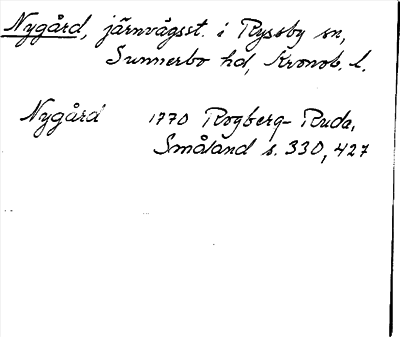 Nygård, järnvägsst. i Ryssby sn,
Sunnerbo hd, Kronob. l.
Nygård 1770 Rogberg-Ruda,
Småland s. 330, 427